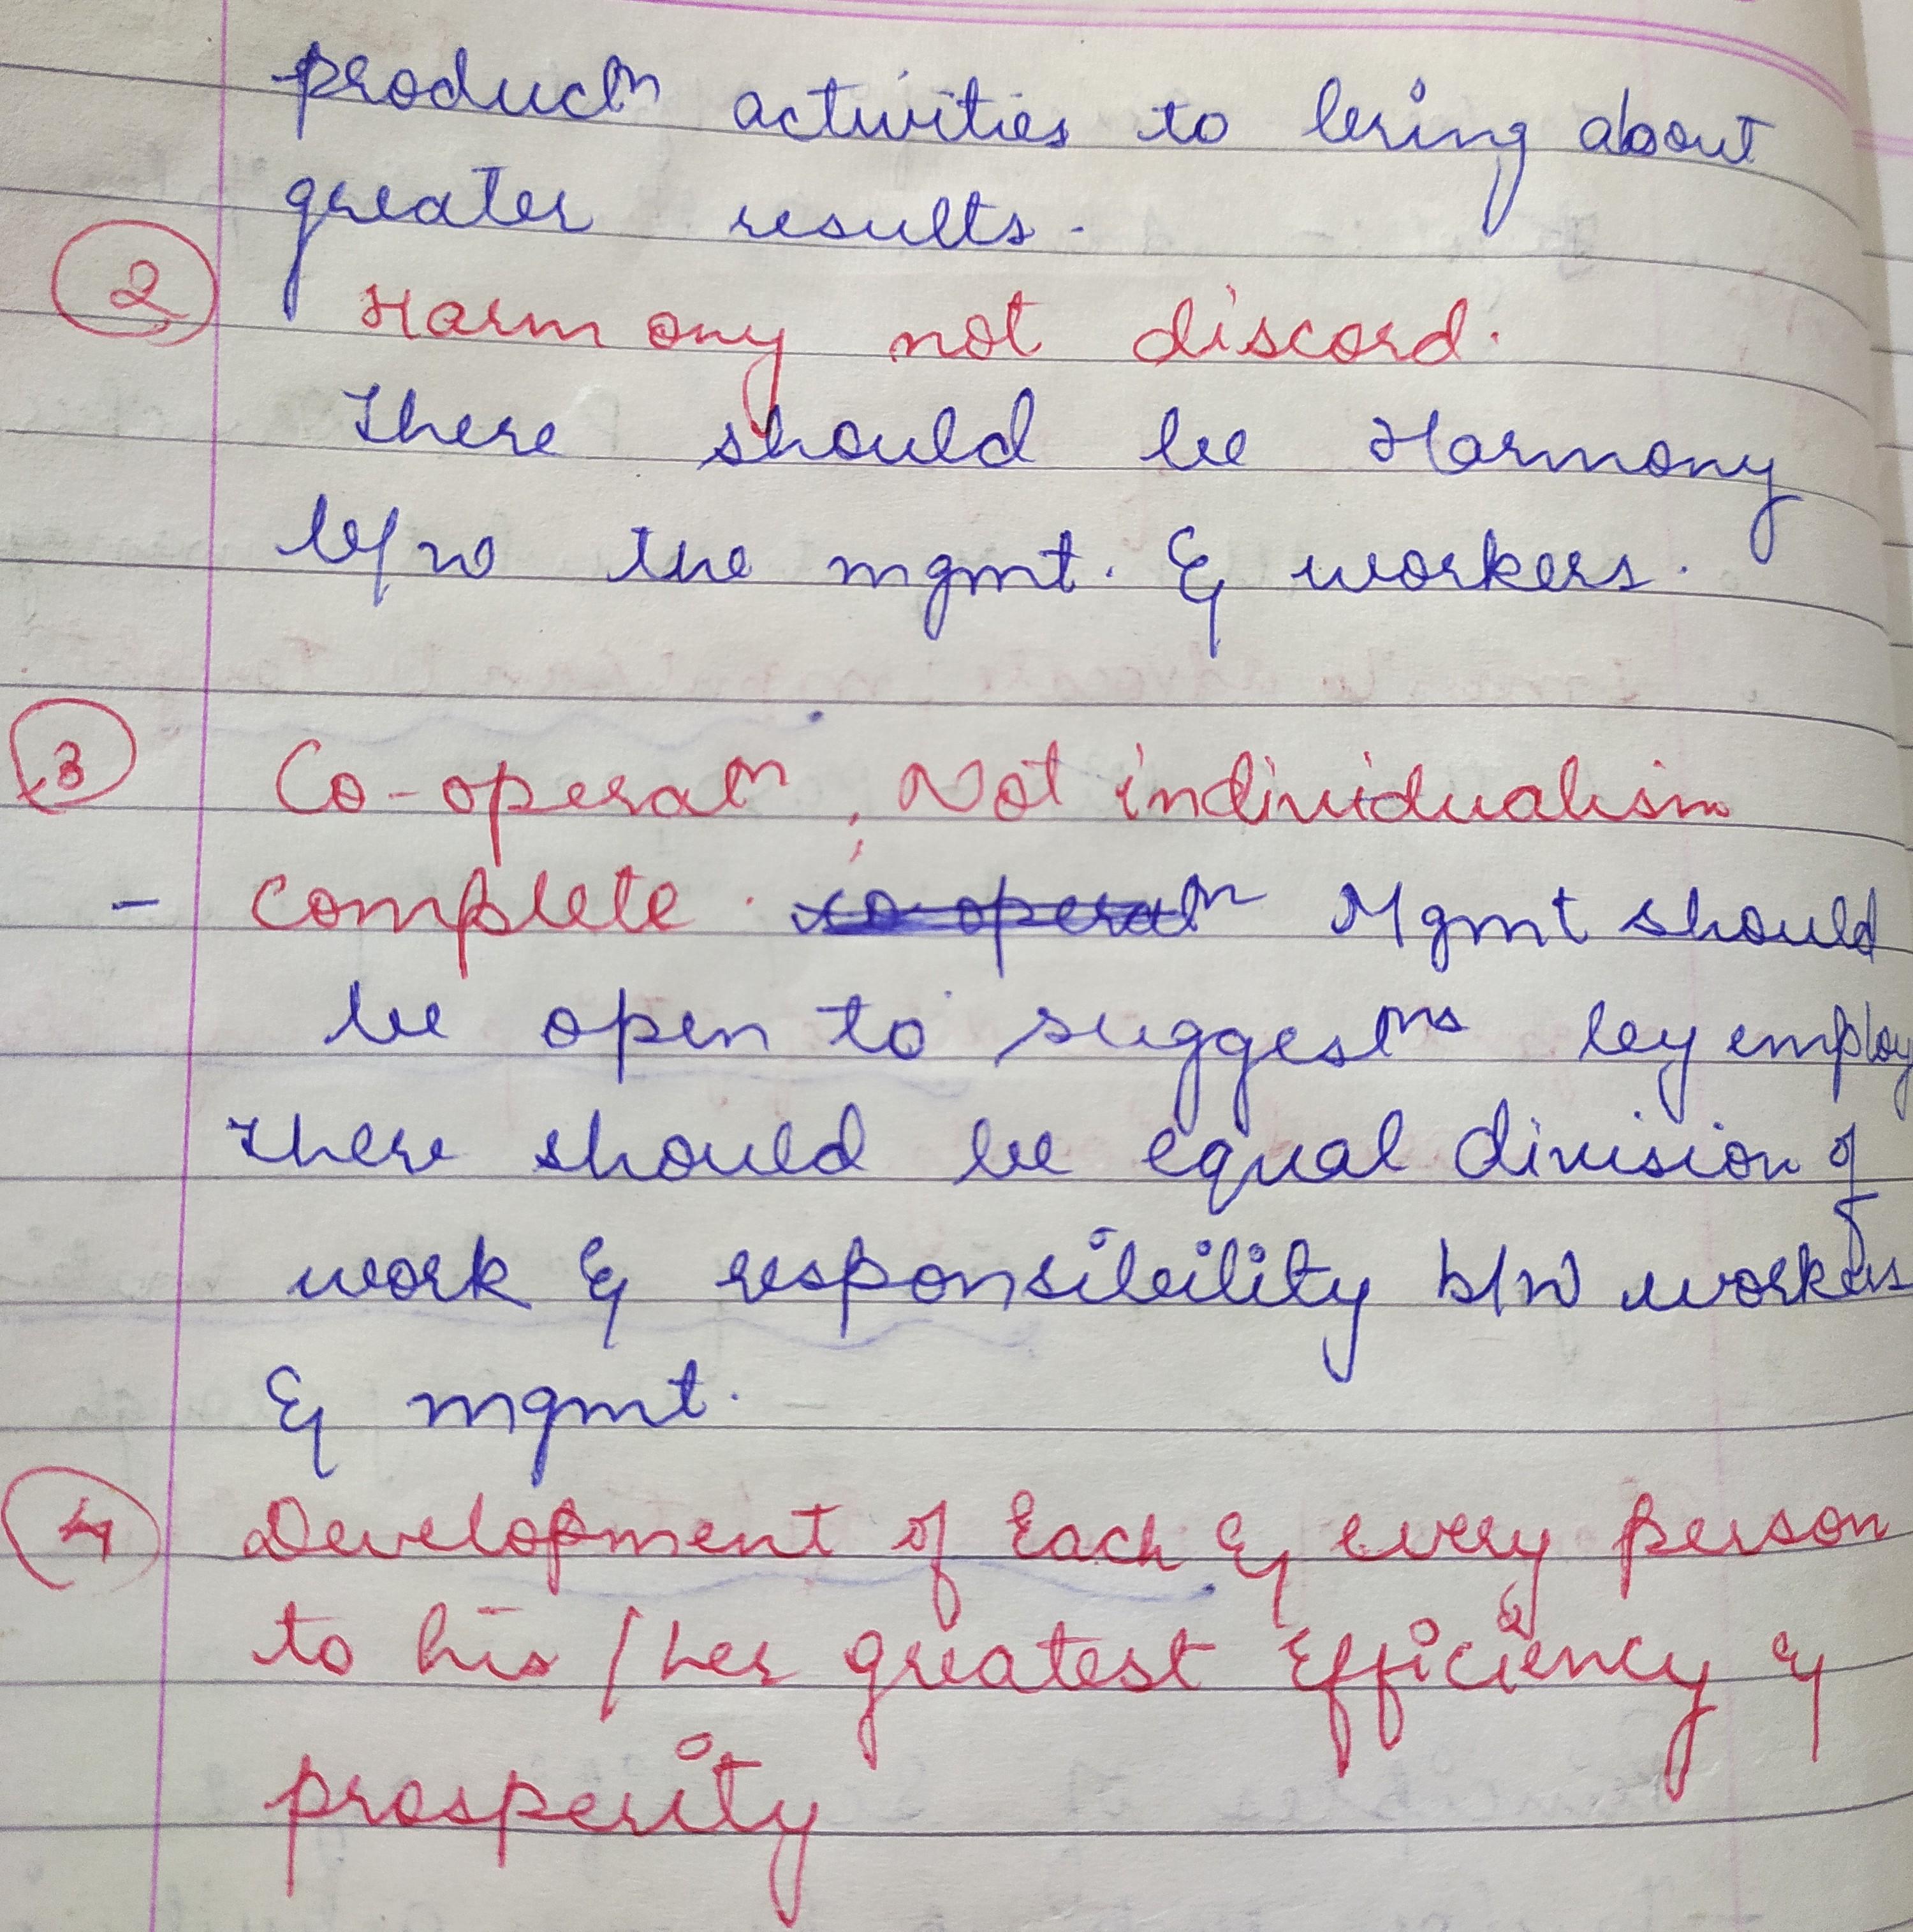 productn activities to bring about
greater results.
2 Harmony not discord.
There should be Harmony
b/w the mgmt. & workers.
3 Co-operatn, Not individualism
- Complete. co-operatn Mgmt should
be open to suggestns by employ
There should be equal division of
work & responsibility b/w workers
& mgmt.
4 Development of Each & every person
to his/her greatest Efficiency &
prosperity